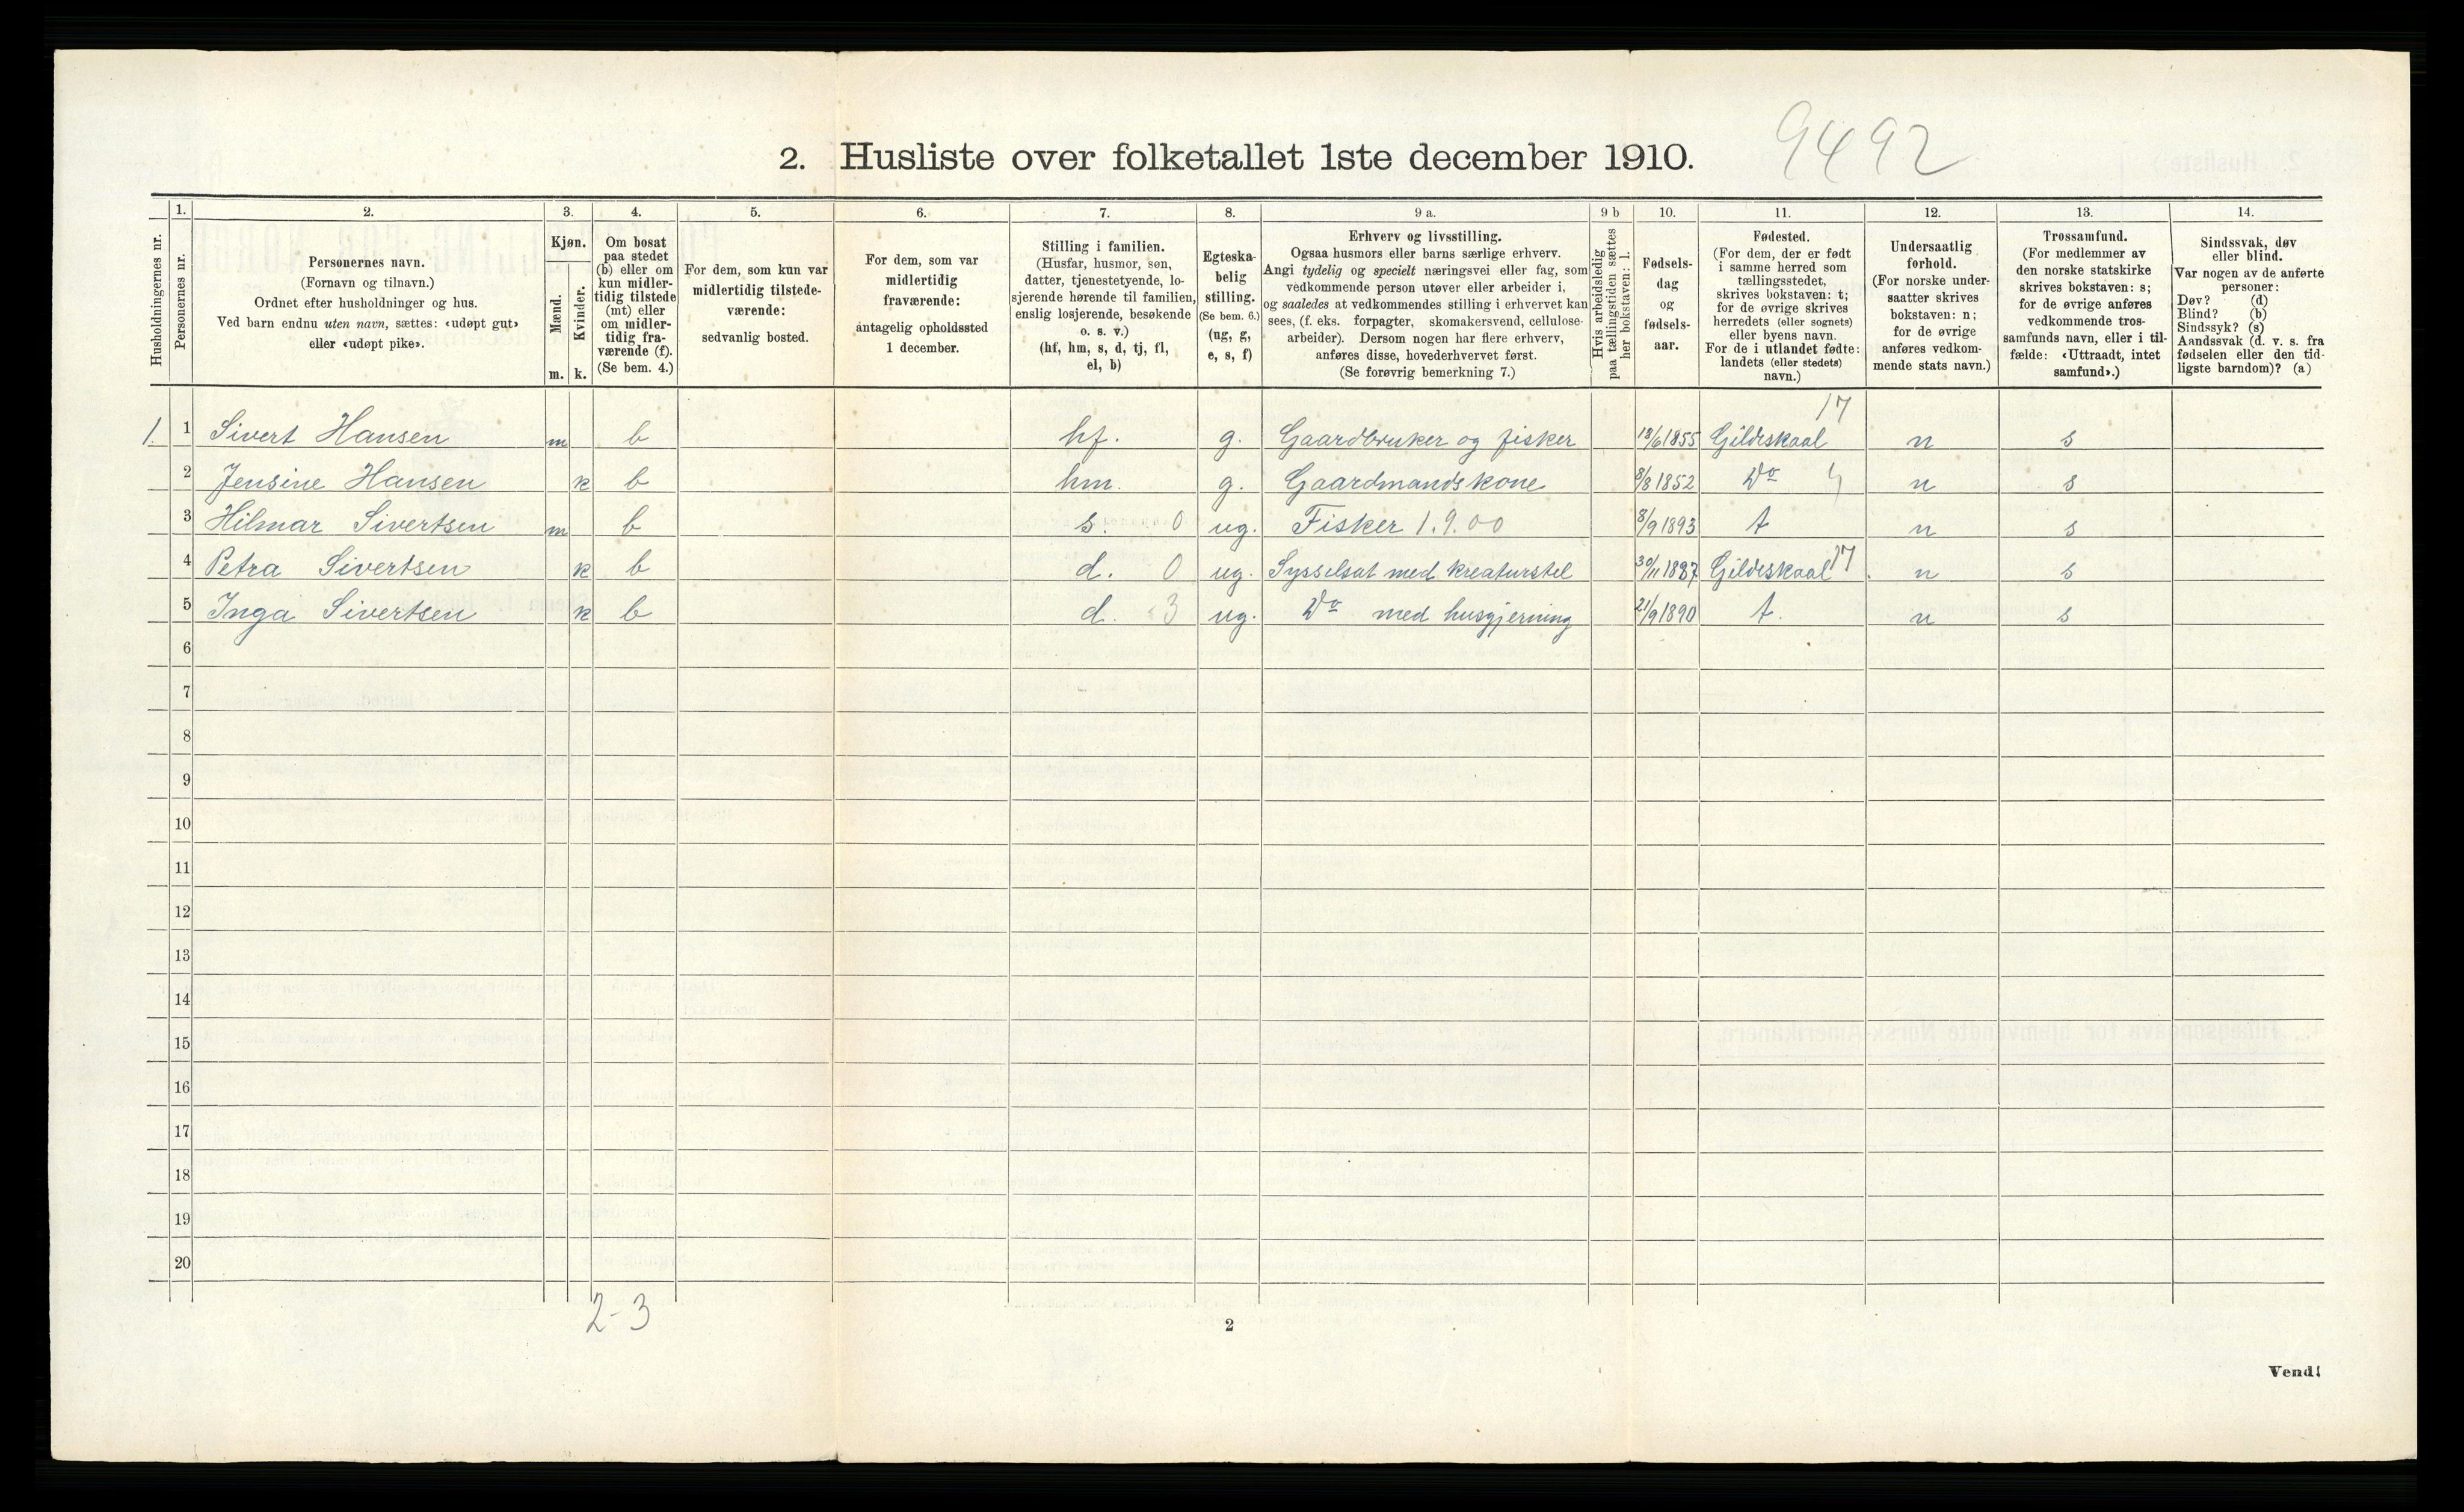 2. Husliste over folketallet 1ste december 1910. 9492
Husholdningernes nr.
1.
Personernes nr.
2.
Personernes navn.
(Fornavn og tilnavn.)
Ordnet efter husholdninger og hus.
Ved barn endnu uten navn, sættes: «udøpt gut»
eller «udøpt pike».
3.
Kjøn.
Mænd.
Kvinder.
m. k.
4.
Om bosat
paa stedet
(b) eller om
kun midler-
tidig tilstede
(mt) eller
om midler-
tidig fra-
værende (f).
(Se bem. 4.)
5.
For dem, som kun var
midlertidig tilstede-
værende:
sedvanlig bosted.
6.
For dem, som var
midlertidig
fraværende:
antagelig opholdssted
1 december.
7.
Stilling i familien.
(Husfar, husmor, søn,
datter, tjenestetyende, lo-
sjerende hørende til familien,
enslig losjerende, besøkende
o. s. v.)
(hf, hm, s, d, tj, fl,
el, b)
8.
Egteska-
belig
stilling.
(Se bem. 6.)
(ug, g,
e, s, f)
9 a.
Erhverv og livsstilling.
Ogsaa husmors eller barns særlige erhverv.
Angi tydelig og specielt næringsvei eller fag, som
vedkommende person utøver eller arbeider i,
og saaledes at vedkommendes stilling i erhvervet kan
sees, (f. eks. forpagter, skomakersvend, cellulose-
arbeider). Dersom nogen har flere erhverv,
anføres disse, hovederhvervet først.
(Se forøvrig bemerkning 7.)
9 b
Hvis arbeidsledig
paa tællingstiden sættes
her bokstaven: l.
10.
Fødsels-
dag
og
fødsels-
aar.
11.
Fødested.
(For dem, der er født
i samme herred som
tællingsstedet,
skrives bokstaven: t;
for de øvrige skrives
herredets (eller sognets)
eller byens navn.
For de i utlandet fødte:
landets (eller stedets)
navn.)
12.
Undersaatlig
forhold.
(For norske under-
saatter skrives
bokstaven: n;
for de øvrige
anføres vedkom-
mende stats navn.)
13.
Trossamfund.
(For medlemmer av
den norske statskirke
skrives bokstaven: s;
for de øvrige anføres
vedkommende tros-
samfunds navn, eller i til-
fælde: «Uttraadt, intet
samfund».)
14.
Sindssvak, døv
eller blind.
Var nogen av de anførte
personer:
Døv? (d)
Blind? (b)
Sindssyk? (s)
Aandssvak (d. v. s. fra
fødselen eller den tid-
ligste barndom)? (a)
17
1. 1 Sivert Hansen m b hf. g. Gaardbruker og fisker 18/6 1855 Gildeskaal n s
2 Jensine Hansen k b hm. g. Gaardmandskone 8/8 1852 Do n s
3 Hilmar Sivertsen m b s. 0 ug. Fisker 1.9.00 8/9 1893 t n s
4 Petra Sivertsen k b d. 0 ug. Sysselsat med kreaturstel 30/11 1887 Gildeskaal 17 n s
5 Inga Sivertsen k b d. 3 ug. Do med husgjerning 21/9 1890 t. n s
6
7
8
9
10
11
12
13
14
15
16
17
18
19
20
2-3
2
Vend!